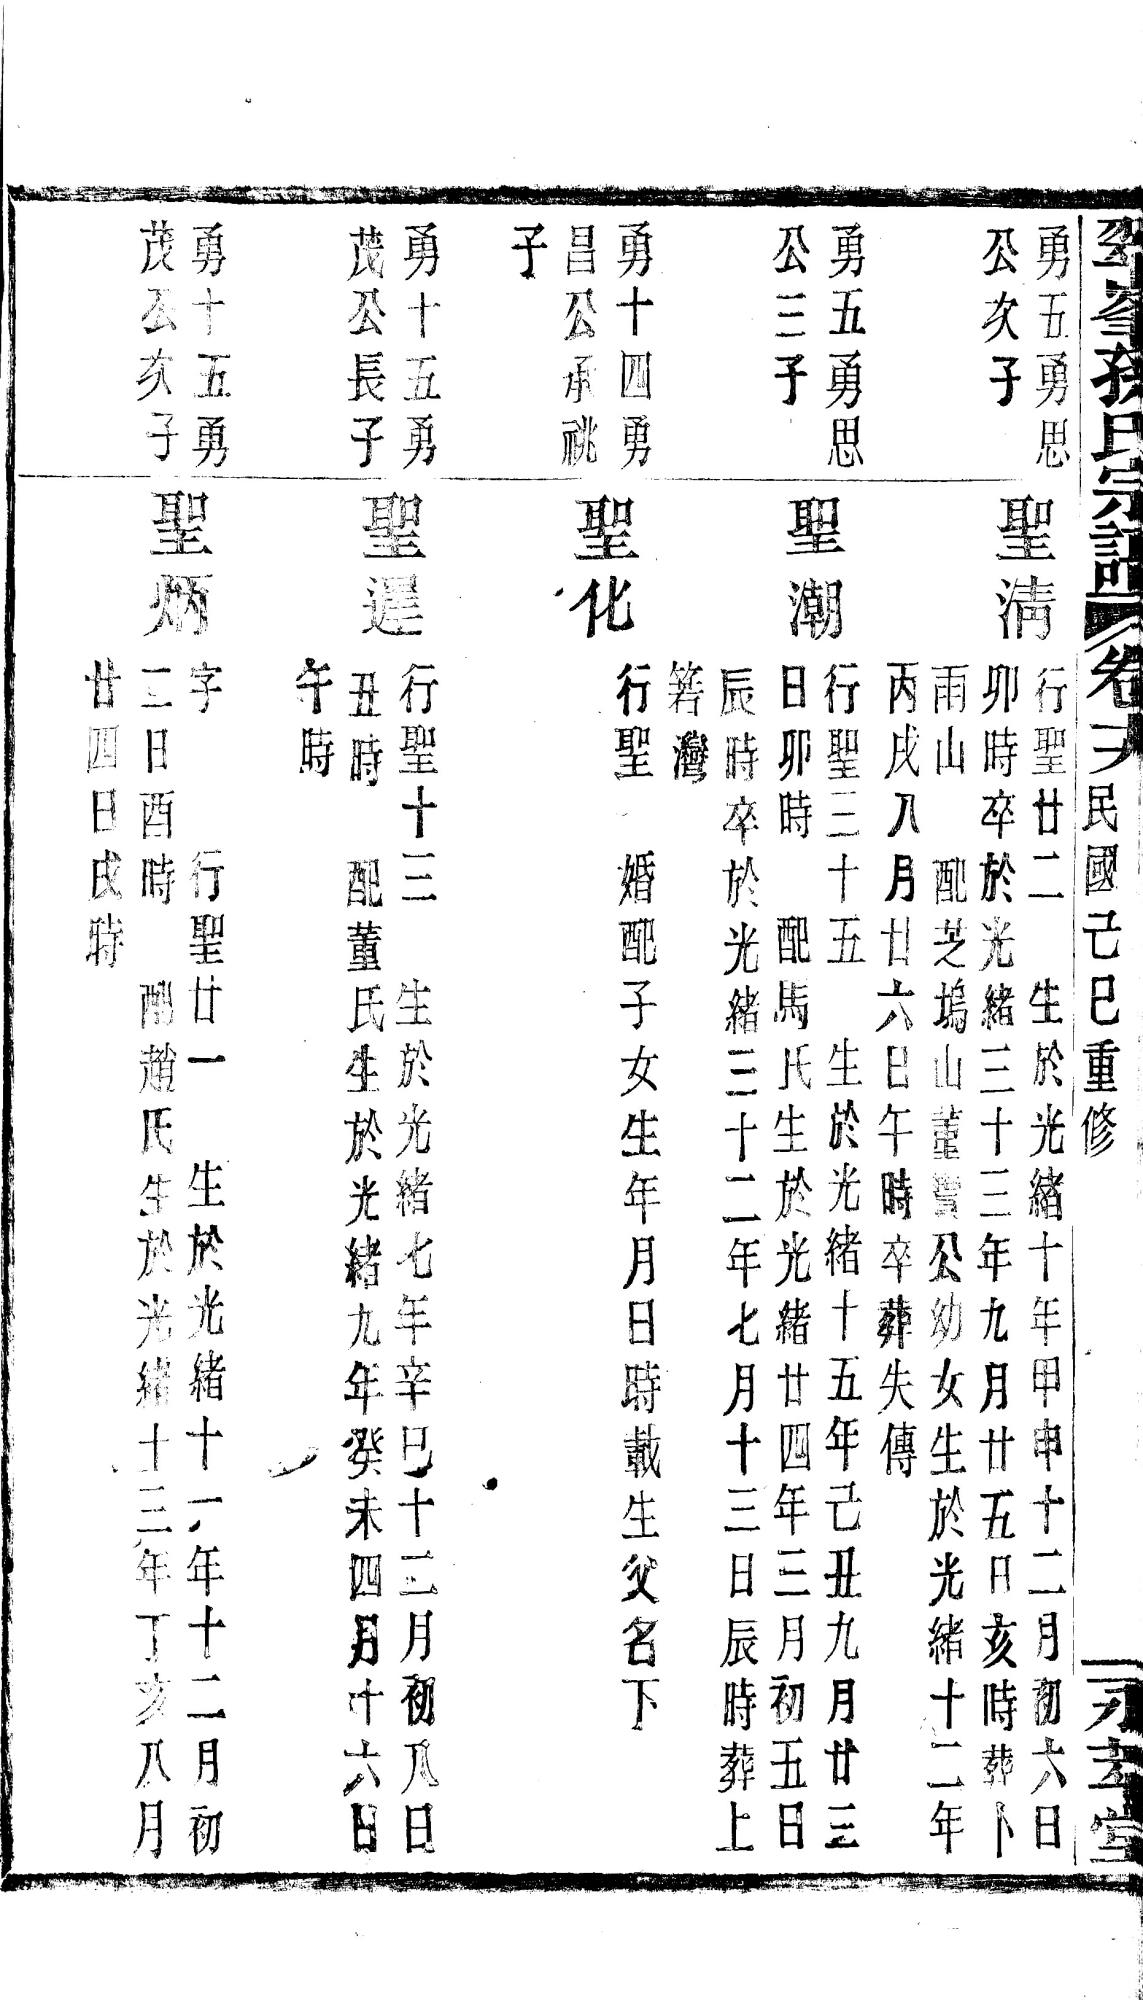 翠峯孫氏宗譜 卷 民國己巳重修 堂
勇五勇思
公次子
聖清
行聖廿二 生於光緒十年甲申十二月初六日
卯時卒於光緒三十三年九月廿五日亥時葬卜
雨山 配芝塢山董寶公幼女生於光緒十二年
丙戌八月廿六巳午時卒葬失傳
勇五勇思
公三子
聖潮
行聖三十五 生於光緒十五年己丑九月廿三
日卯時 配馬氏生於光緒廿四年三月初五日
辰時卒於光緒三十二年七月十三日辰時葬上
箬灣
勇十四勇
昌公承祧
子
聖化
行聖 婚配子女生年月日時載生父名下
勇十五勇
茂公長子
聖遲
行聖十三 生於光緒七年辛巳十二月初八日
丑時 配董氏生於光緒九年癸未四月十六日
午時
勇十五勇
茂公次子
聖炳
字 行聖廿一 生於光緒十一年十二月初
二日酉時 配趙氏生於光緒十三年丁亥八月
廿四日戌時